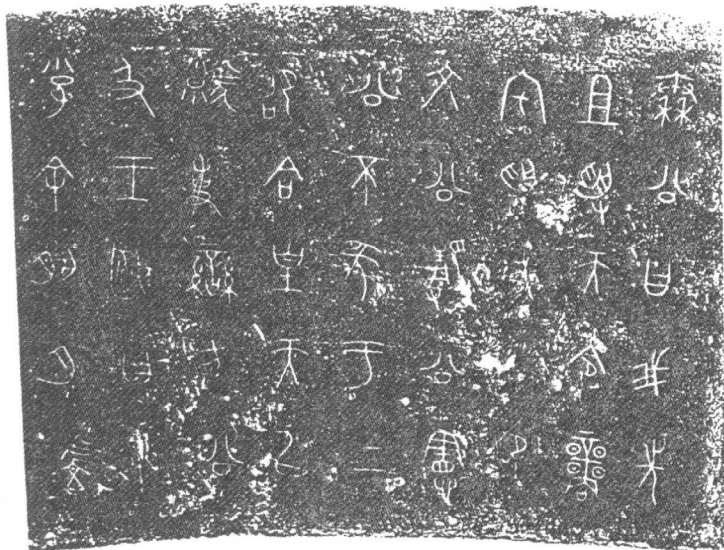 秦公曰我先
且受天令商
宅受或剌卲
文公靜公憲
公不㒸于上
卲合皇天以
虩事蠻方公
及王姬曰余
小子余夙夕虔